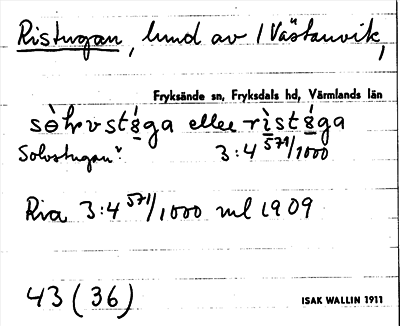 Ristugan, lund av 1 Västanvik,
Fryksände sn, Fryksdals hd, Värmlands län
eller
Solvstugan".
3:4 571/1000
Ria 3:4 571/1000 ml 1909
43 (36)
ISAK WALLIN 1911